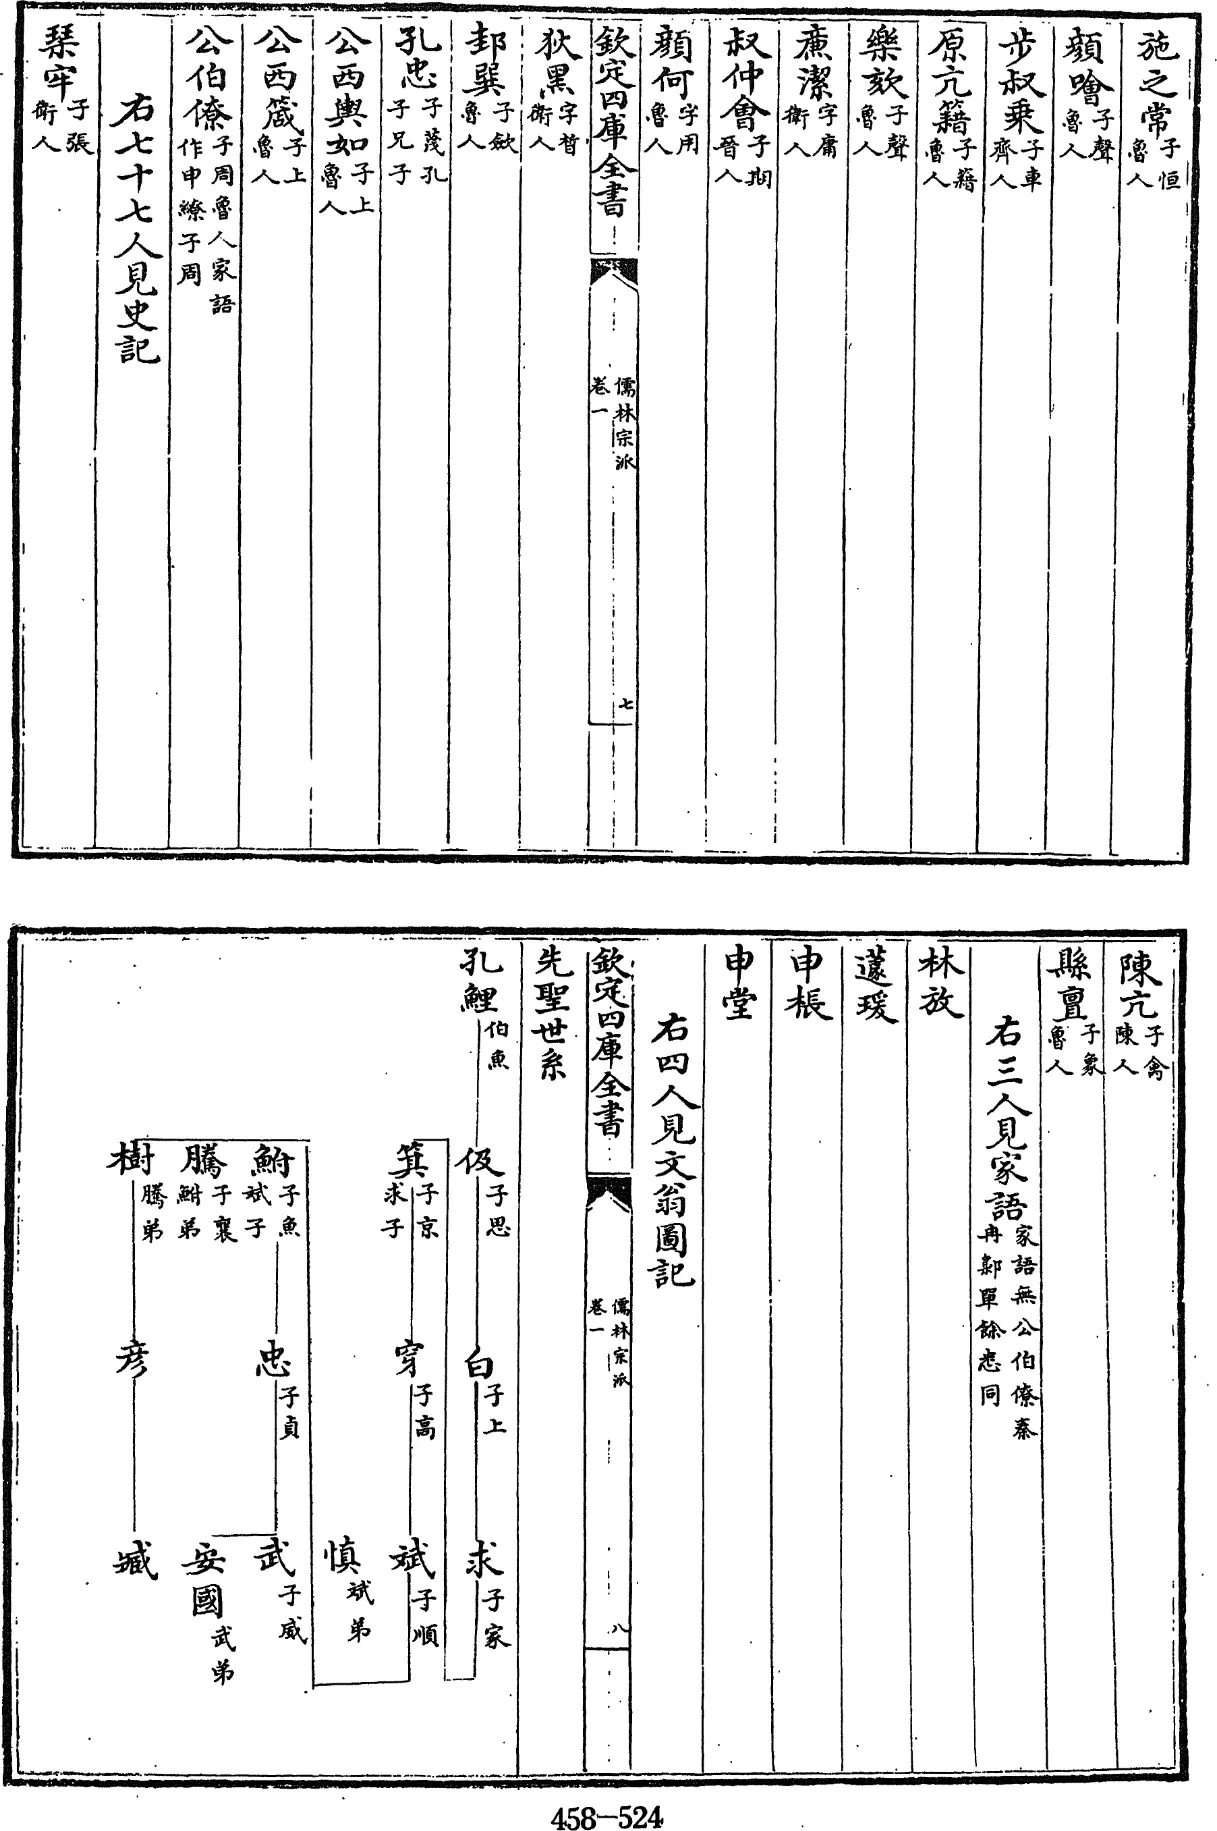 施之常子恒魯人
顔噲子聲魯人
步叔乗子車齊人
原亢籍子籍魯人
樂欬子聲魯人
亷潔字庸衛人
叔仲會子期晉人
顔何字用魯人
欽定四庫全書
儒林宗派
卷一
七
狄黑字晳衛人
邽巽子歛魯人
孔忠子蔑孔子兄子
公西輿如子上魯人
公西箴子上魯人
公伯僚子周魯人家語作申繚子周
右七十七人見史記
琹牢子張衛人
陳亢子禽陳人
縣亶子象魯人
右三人見家語家語無公伯僚秦冉鄡單餘悉同
林放
蘧瑗
申棖
申堂
右四人見文翁圖記
欽定四庫全書
儒林宗派
卷一
八
先聖世系
孔鯉伯魚
伋子思
白子上
求子家
箕子京求子
穿子高
斌子順
慎斌弟
鮒子魚斌子
忠子貞
武子威
安國武弟
騰子襄鮒弟
樹騰弟
彦
臧
458-524